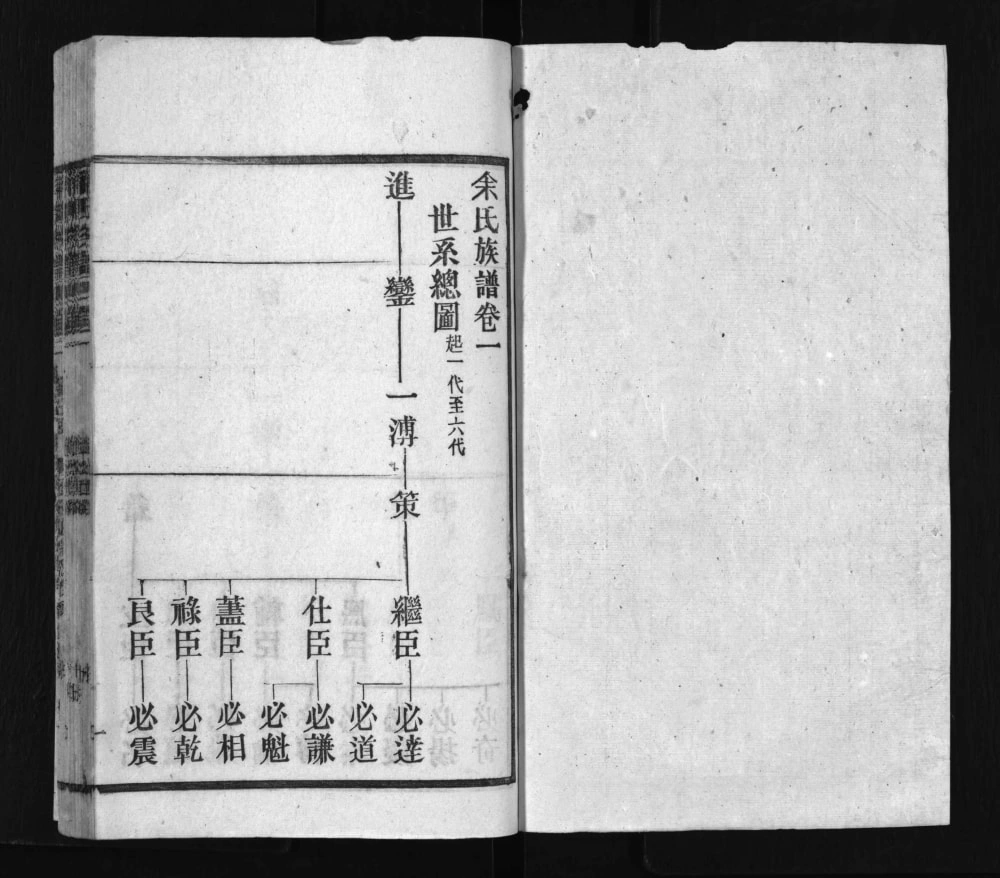 余氏族譜卷一
世系總圖起一代至六代
進
鑾
一溥
策
繼臣
仕臣
藎臣
祿臣
良臣
必達
必道
必謙
必魁
必相
必乾
必震
一